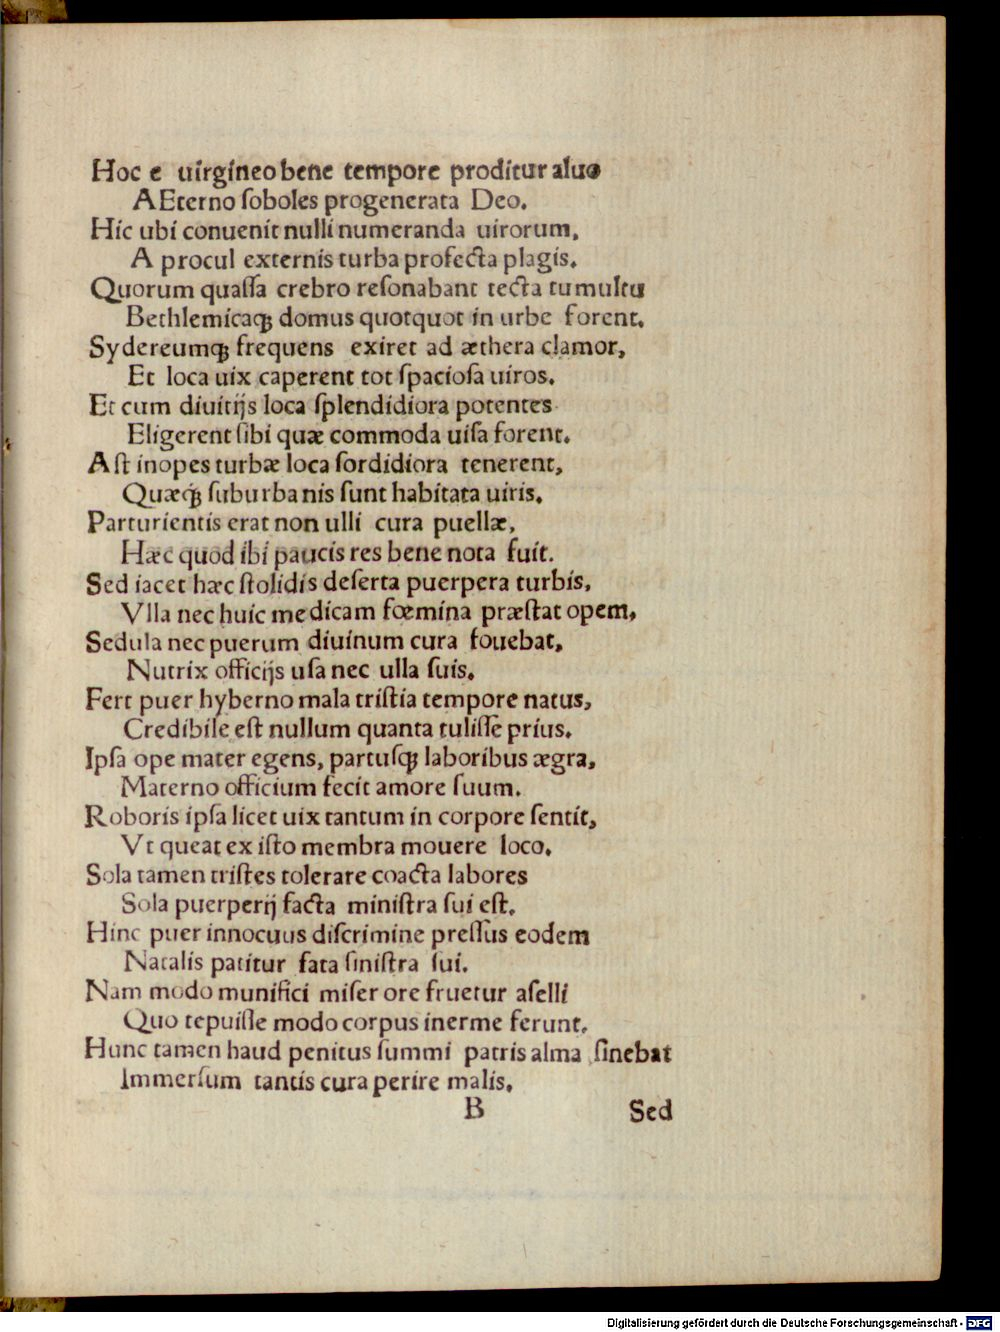 Hoc e uirgineo bene tempore proditur aluo
AEterno ſoboles progenerata Deo.
Hic ubi conuenit nulli numeranda uirorum,
A procul externis turba profecta plagis.
Quorum quaſſa crebro reſonabant tecta tumultu
Bethlemicaꝗ; domus quotquot in urbe forent.
Sydereumꝗ; frequens exiret ad æthera clamor,
Et loca uix caperent tot ſpacioſa uiros.
Et cum diuitijs loca ſplendidiora potentes
Eligerent ſibi quæ commoda uiſa forent.
Aſt inopes turbæ loca ſordidiora tenerent,
Quæꝗ; ſuburbanis ſunt habitata uiris.
Parturientis erat non ulli cura puellæ,
Hæc quod ibi paucis res bene nota fuit.
Sed iacet hæc ſtolidis deſerta puerpera turbis,
Vlla nec huic medicam fœmina præſtat opem,
Sedula nec puerum diuinum cura fouebat,
Nutrix officijs uſa nec ulla ſuis.
Fert puer hyberno mala triſtia tempore natus,
Credibile eſt nullum quanta tuliſſe prius.
Ipſa ope mater egens, partuſꝗ; laboribus ægra,
Materno officium fecit amore ſuum.
Roboris ipſa licet uix tantum in corpore ſentit,
Vt queat ex iſto membra mouere loco.
Sola tamen triſtes tolerare coacta labores
Sola puerperij facta miniſtra ſui eſt.
Hinc puer innocuus diſcrimine preſſus eodem
Natalis patitur fata ſiniſtra ſui.
Nam modo munifici miſer ore fruetur aſelli
Quo tepuiſſe modo corpus inerme ferunt.
Hunc tamen haud penitus ſummi patris alma ſinebat
Immerſum tantis cura perire malis.
B Sed
Digitalisierung gefördert durch die Deutsche Forschungsgemeinschaft - DFG